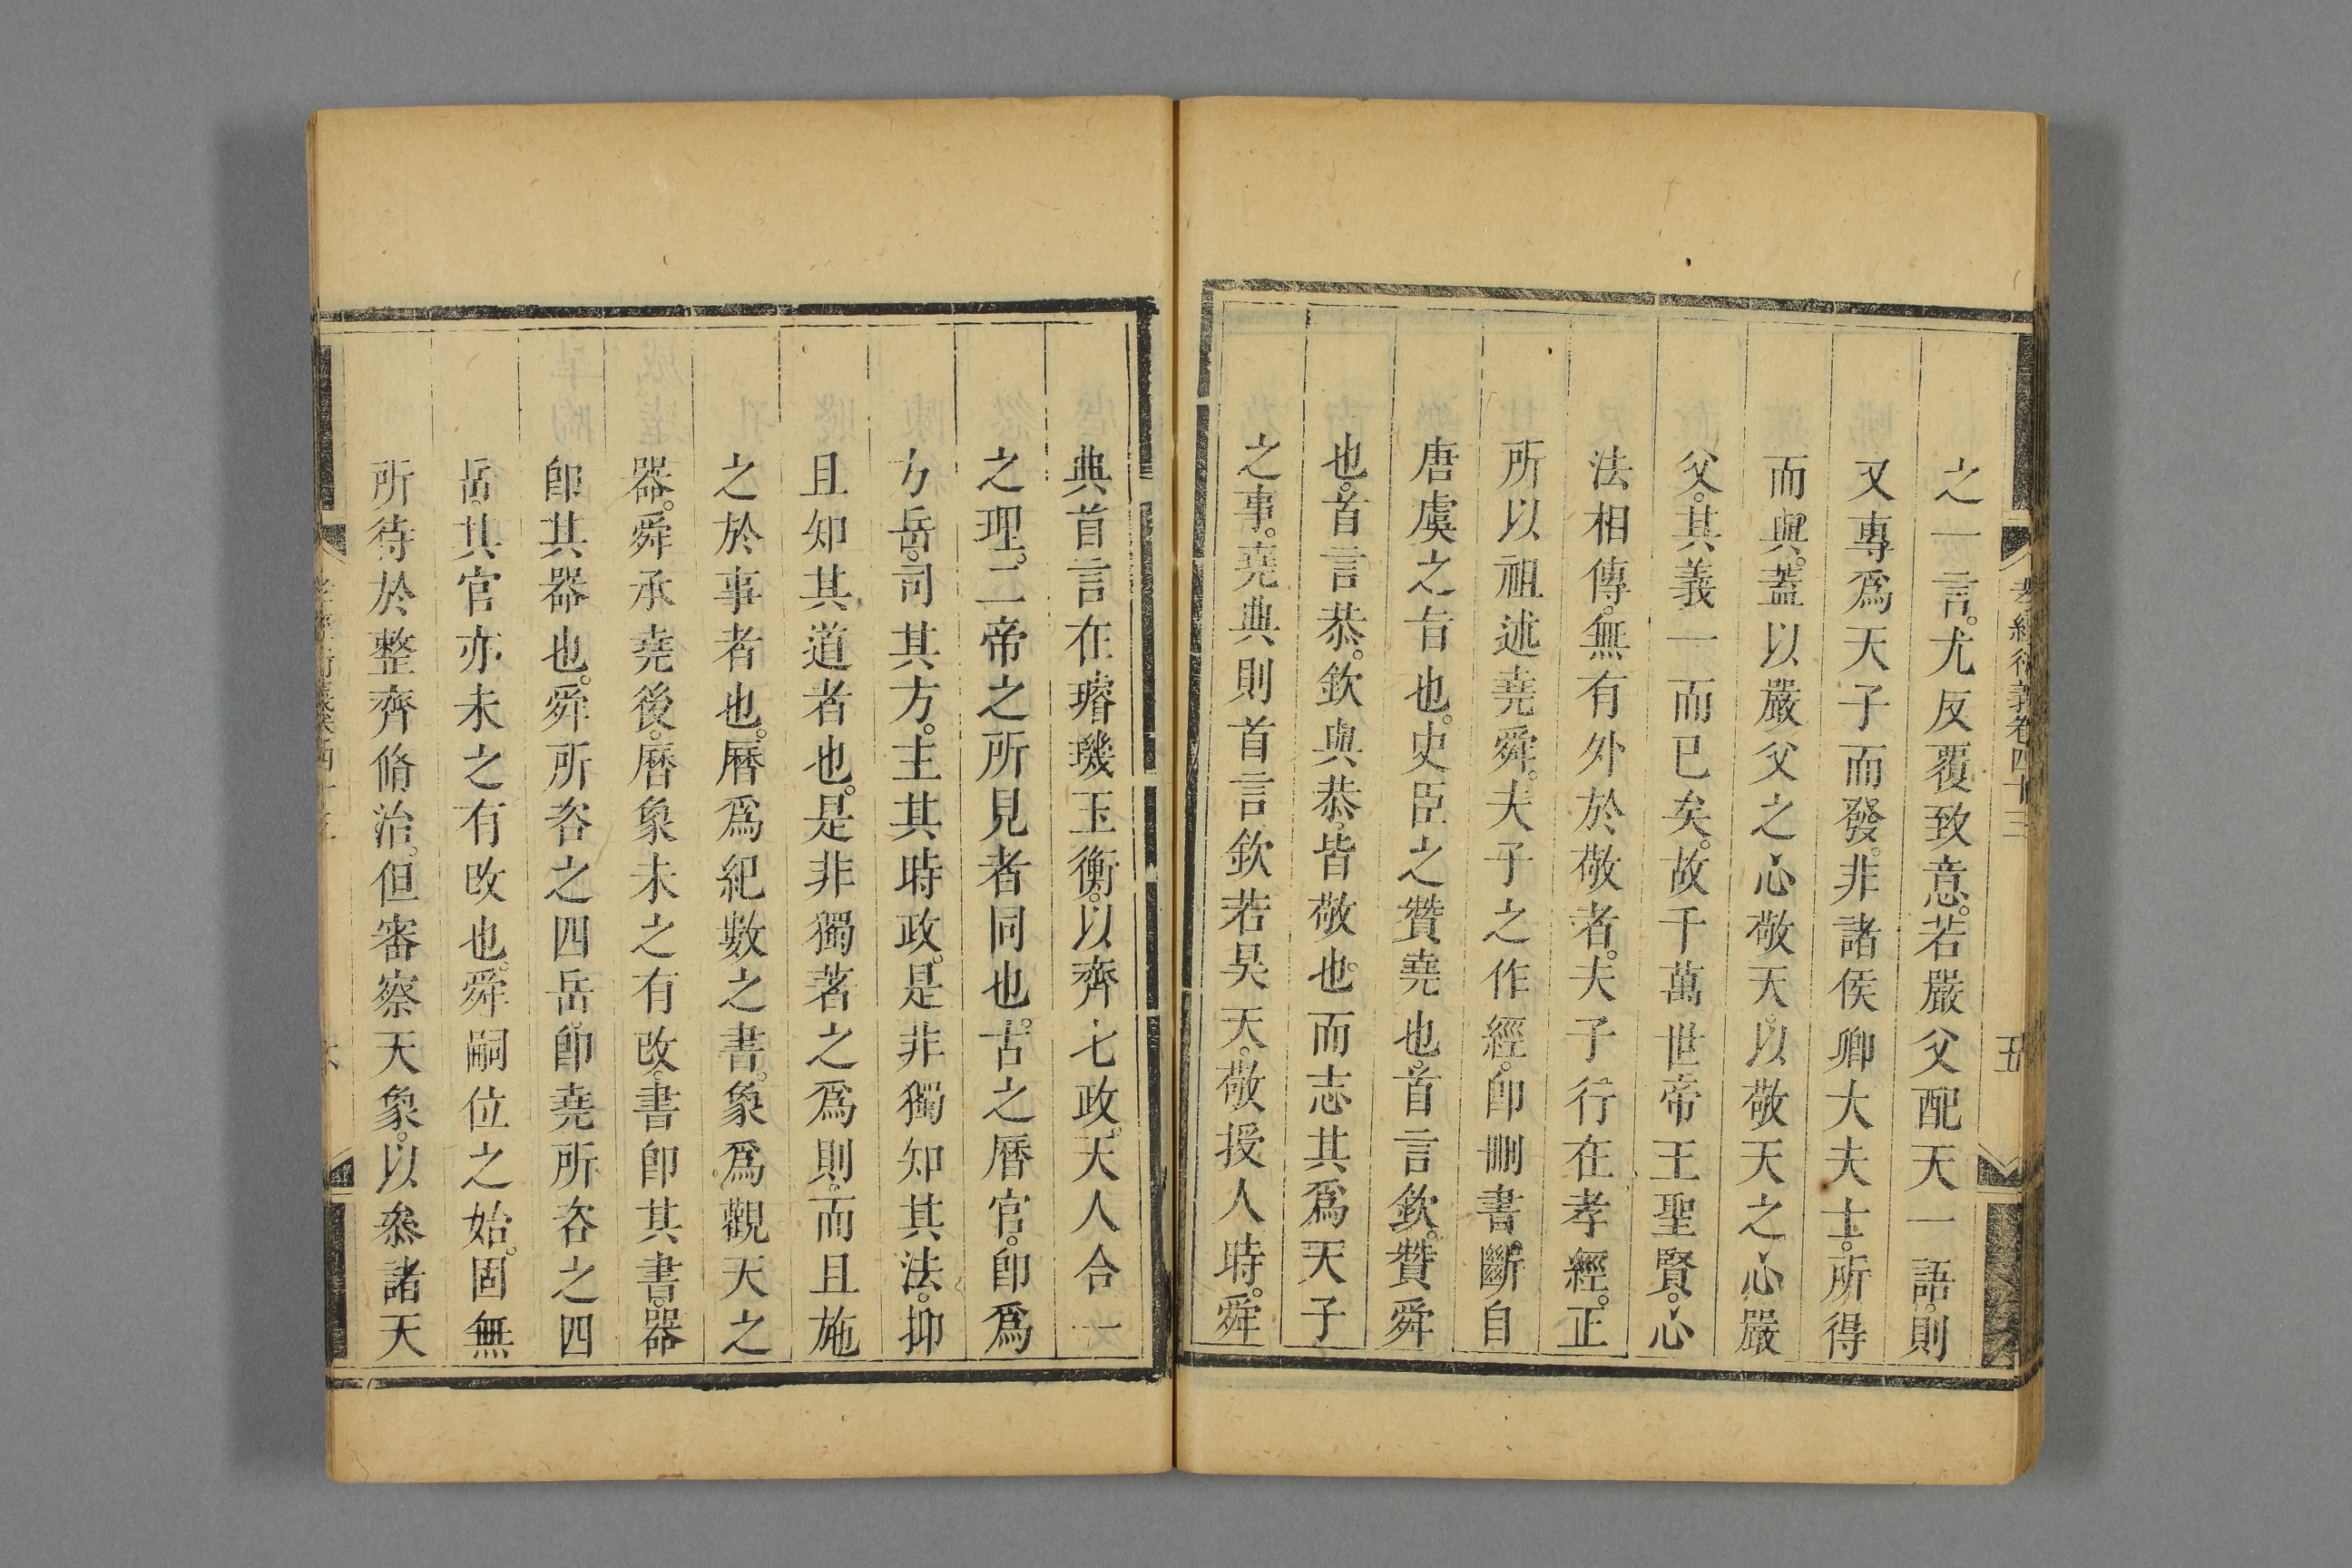 孝經衍義卷四十三
五
之一言。尤反覆致意。若嚴父配天一語。則
又專爲天子而發。非諸侯卿大夫士。所得
而與。蓋以嚴父之心敬天。以敬天之心嚴
父。其義一而已矣。故千萬世帝王聖賢。心
法相傳。無有外於敬者。夫子行在孝經。正
所以祖述堯舜。夫子之作經。卽刪書。斷自
唐虞之旨也。史臣之贊堯也。首言欽。贊舜
也。首言恭。欽與恭。皆敬也。而志其爲天子
之事。堯典則首言欽若昊天。敬授人時。舜
典首言在璿璣玉衡。以齊七政。天人合一
之理。二帝之所見者同也。古之曆官。卽爲
方岳。司其方。主其時政。是非獨知其法。抑
且知其道者也。是非獨著之爲則。而且施
之於事者也。曆爲紀數之書。象爲觀天之
器。舜承堯後。曆象未之有改。書卽其書。器
卽其器也。舜所咨之四岳。卽堯所咨之四
岳。其官亦未之有改也。舜嗣位之始。固無
所待於整齊脩治。但審察天象。以叅諸天